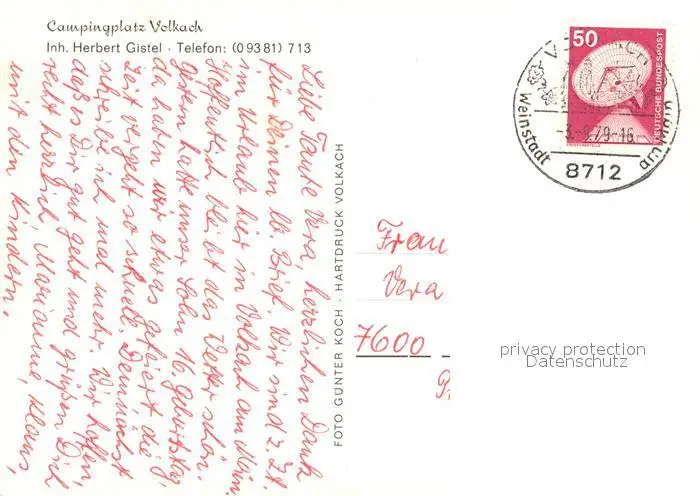 Campingplatz Volkach
Inh. Herbert Gistel · Telefon: (0 93 81) 713
Liebe Tante Vera, herzlichen Dank
für Deinen lb Brief. Wir sind z. Zt.
im Urlaub hier in Volkach am Main.
Hoffentlich bleibt das Wetter schön.
Gestern hatte unser Sohn 16. Geburtstag,
da haben wir etwas gefeiert die
Zeit vergeht so schnell. Demnächst
schreibe ich mal mehr. Wir hoffen,
daß es Dir gut geht und grüßen Dich
recht herzlich, Marianne, Klaus,
mit den Kindern.
FOTO GÜNTER KOCH · HARTDRUCK VOLKACH
50
DEUTSCHE BUNDESPOST
-3.-9.79-16
Weinstadt am Main
8712
Frau
Vera
7600
privacy protection
Datenschutz